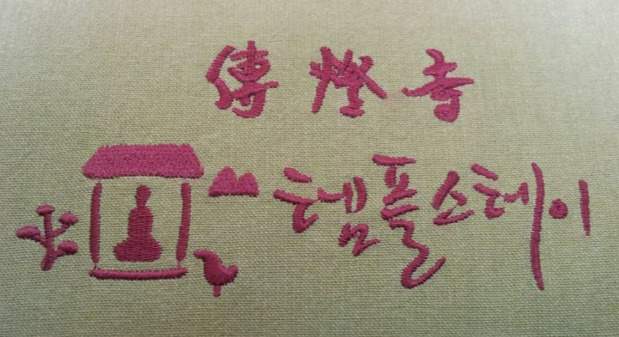 傳燈寺
템플스테이